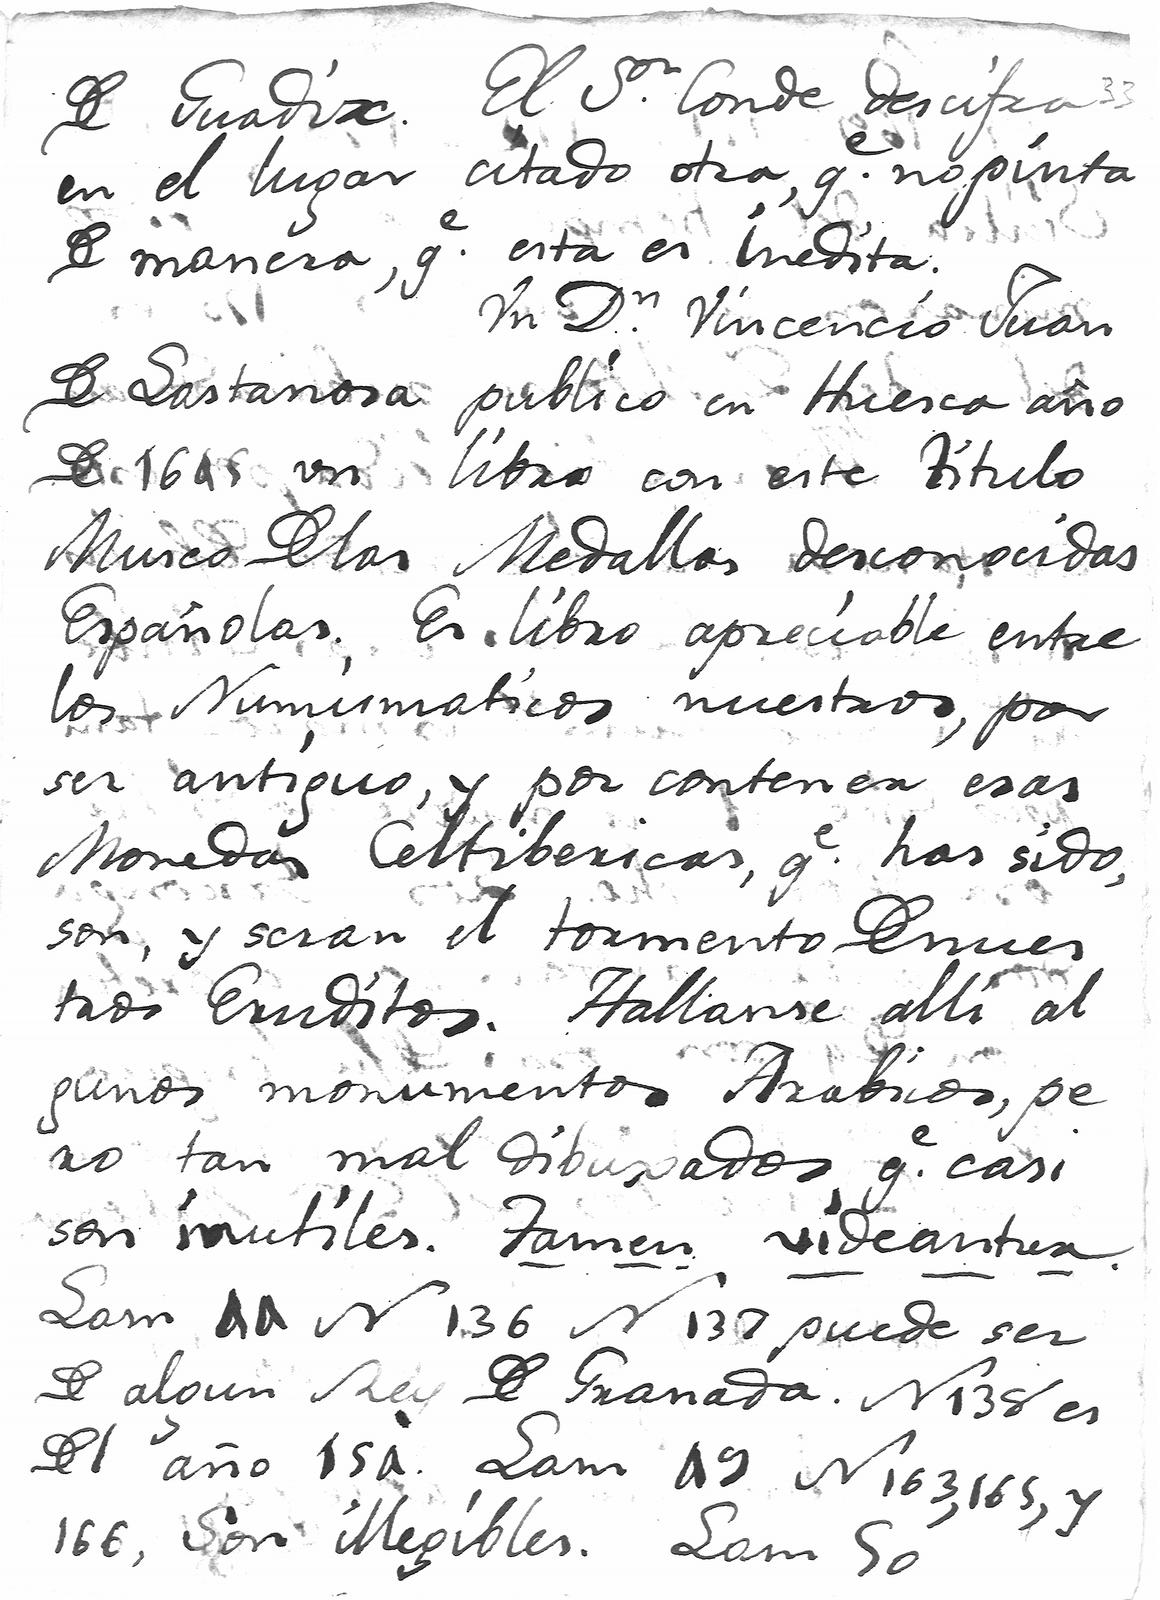 De Guadix. El S.or Conde descifra 33
en el lugar citado otra, q.e no pinta
De manera, q.e esta es inedita.
Vn D.n Vincencio Juan
De Lastanosa publico en Huesca año
De 1645 vn libro con este titulo
Museo Delas Medallas desconocidas
Españolas. Es libro apreciable entre
los Numismaticos nuestros, por
ser antiguo, y por contener esas
Monedas Celtibericas, q.e has sido,
son, y seran el tormento De nues
tros Eruditos. Hallanse alli al
gunos monumentos Arabicos, pe
ro tan mal dibuxados q.e casi
son inutiles. Tamen videantur.
Lam 44 N 136 N 137 puede ser
De algun Rey De Granada. N 138 es
Del año 154. Lam 49 N 163, 165, y
166, Son illegibles. Lam 50